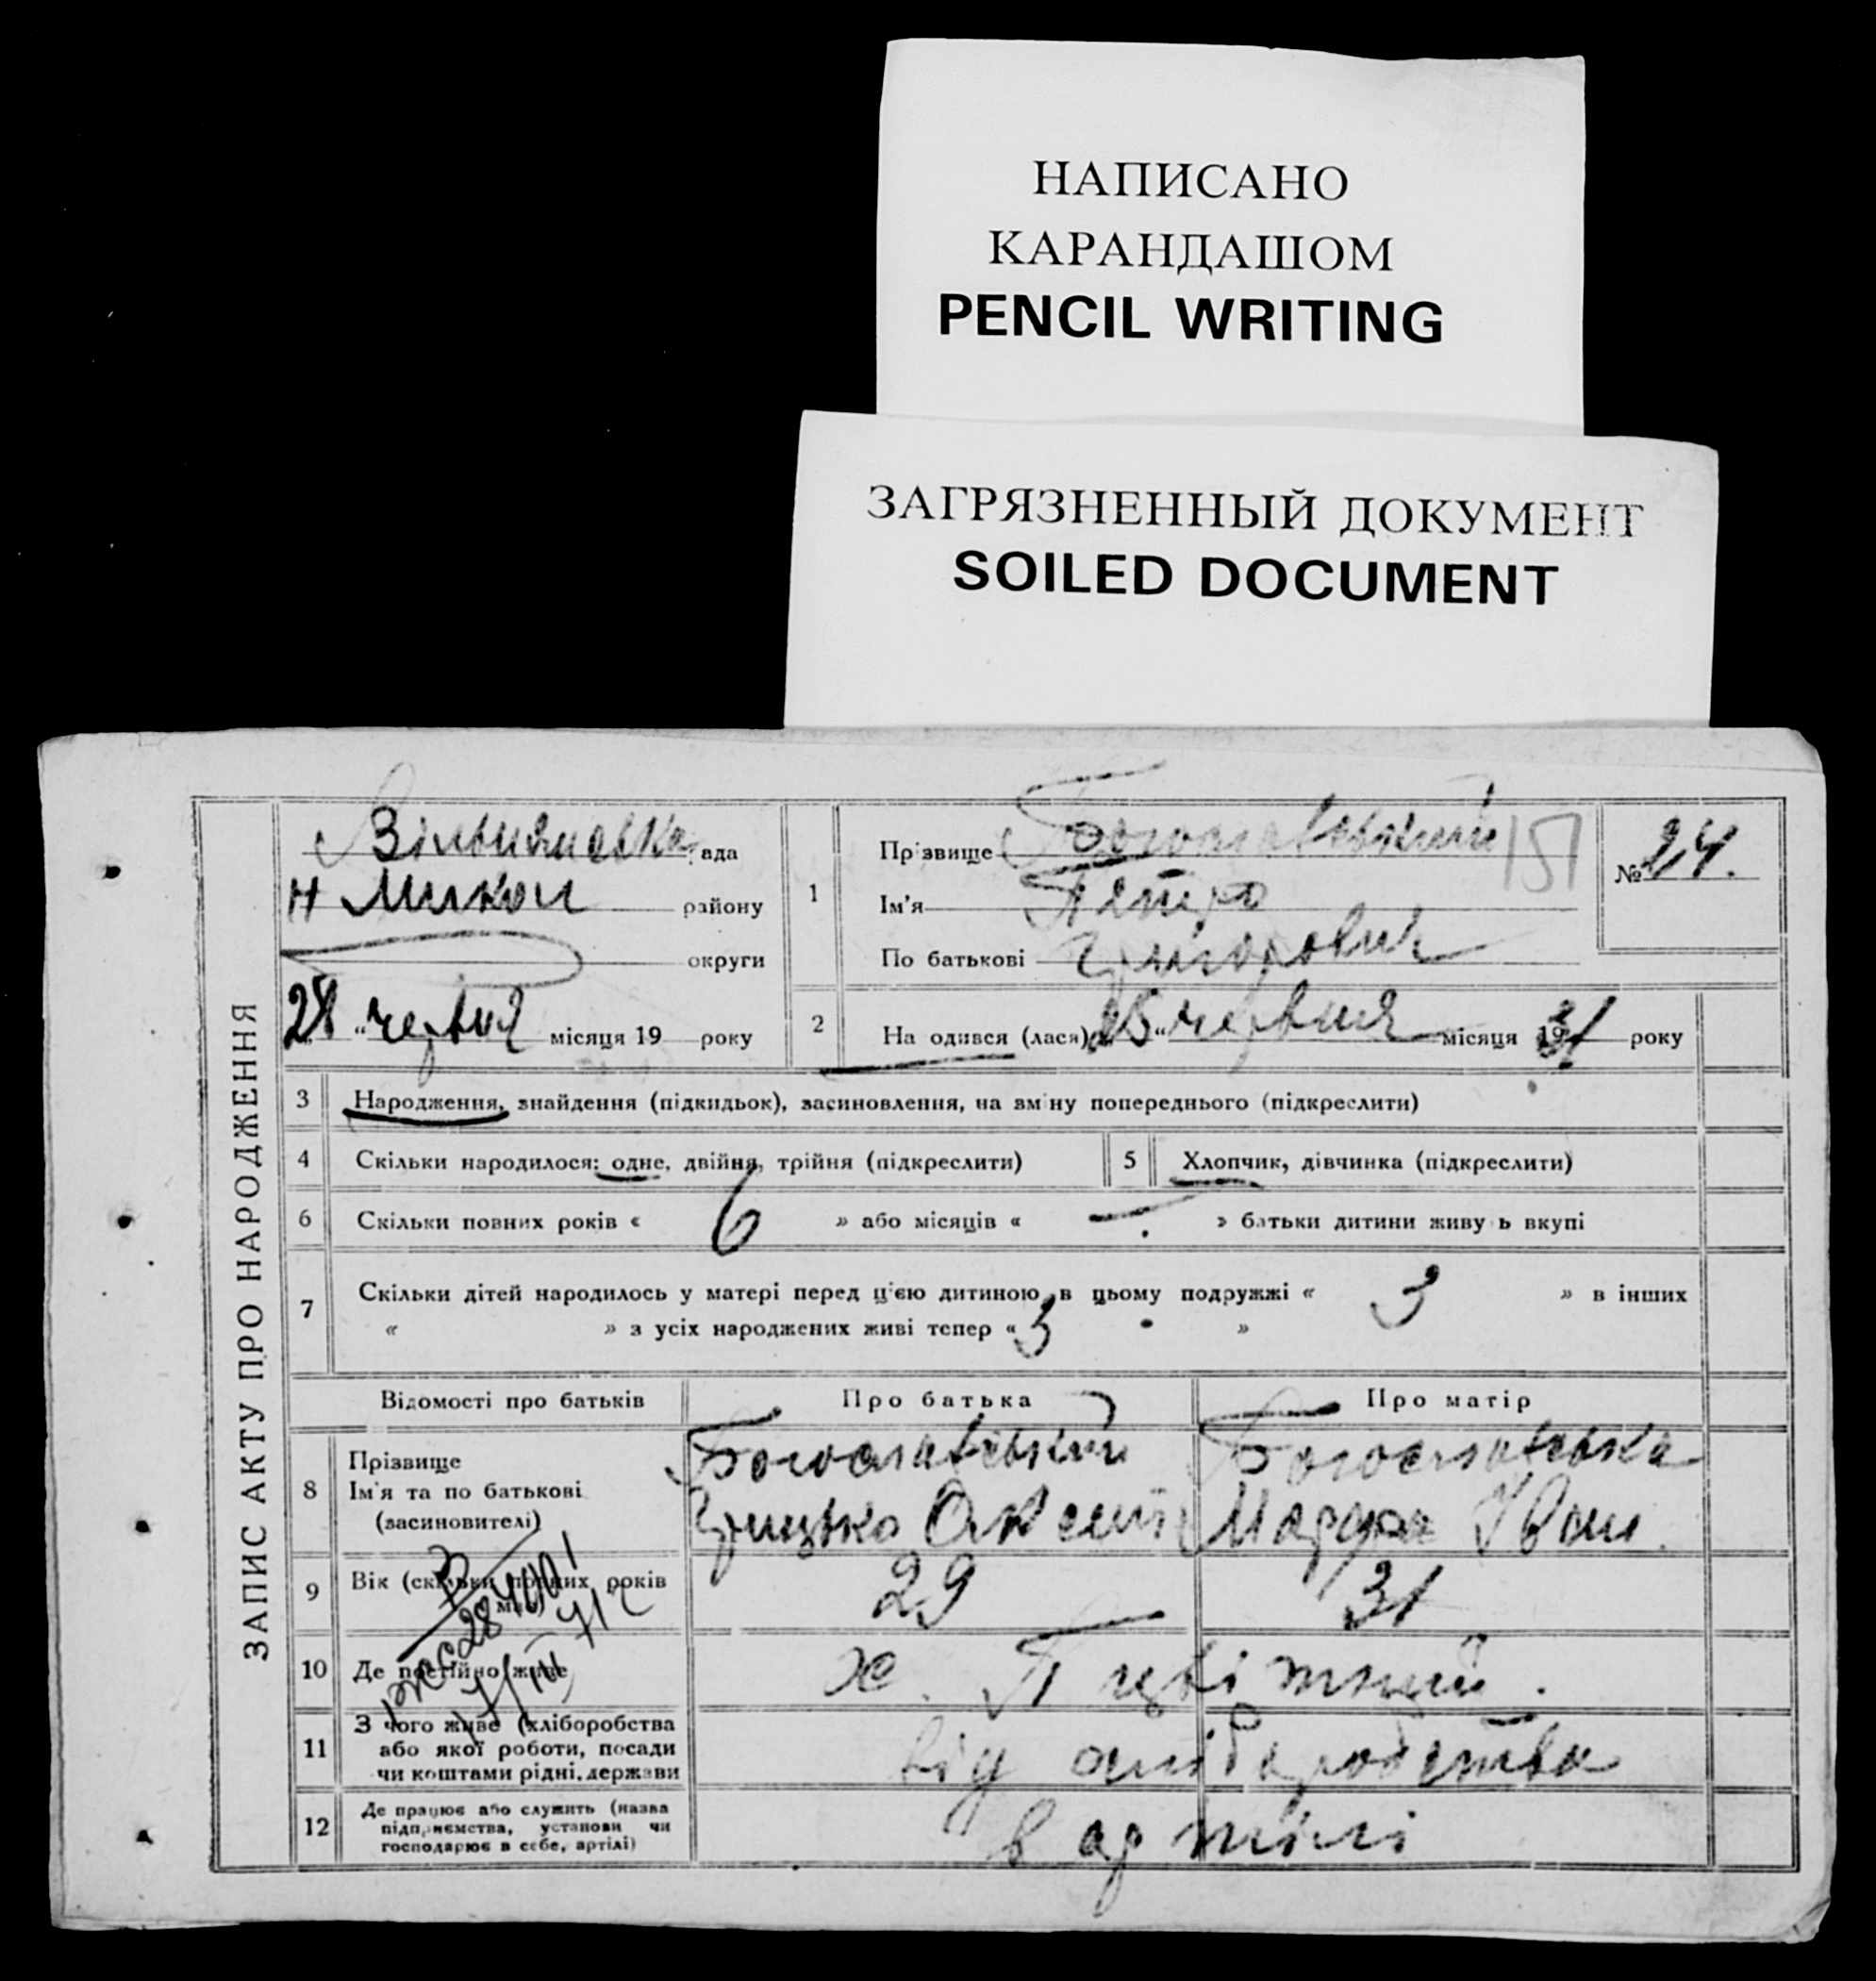 НАПИСАНО
КАРАНДАШОМ
PENCIL WRITING
ЗАГРЯЗНЕННЫЙ ДОКУМЕНТ
SOILED DOCUMENT
ЗАПИС АКТУ ПРО НАРОДЖЕННЯ
рада
н Микол району
округи
28 „ червня місяця 19 року
1 Прізвище Богославський 151
Ім'я Петро
По батькові Григорович
№ 24.
2 Народився (лася) 25 „ червня місяця 1931 року
3 Народження, знайдення (підкидьок), засиновлення, на зміну попереднього (підкреслити)
4 Скільки народилося: одне, двійня, трійня (підкреслити) 5 Хлопчик, дівчинка (підкреслити)
6 Скільки повних років « 6 » або місяців « — » батьки дитини живуть вкупі
7 Скільки дітей народилось у матері перед цією дитиною в цьому подружжі « 3 » в інших
« » з усіх народжених живі тепер « 3 »
Відомості про батьків Про батька Про матір
8 Прізвище Богославський Богославська
Ім'я та по батькові Грицько
(засиновителі)
9 Вік (скільки повних років 29 31
10 Де постійно живе х.
11 З чого живе (хліборобства
або якої роботи, посади від
чи коштами рідні, держави
12 Де працює або служить (назва
підприємства, установи чи в артілі
господарює в себе, артілі)